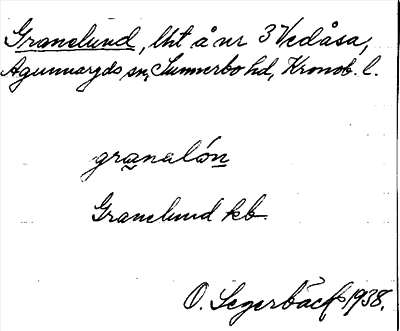 Granelund, lht å nr 3 Vedåsa,
Agunnaryds sn, Sunnerbo hd, Kronob. l.
granalón
Granelund kb
O. Segerbäck 1938.